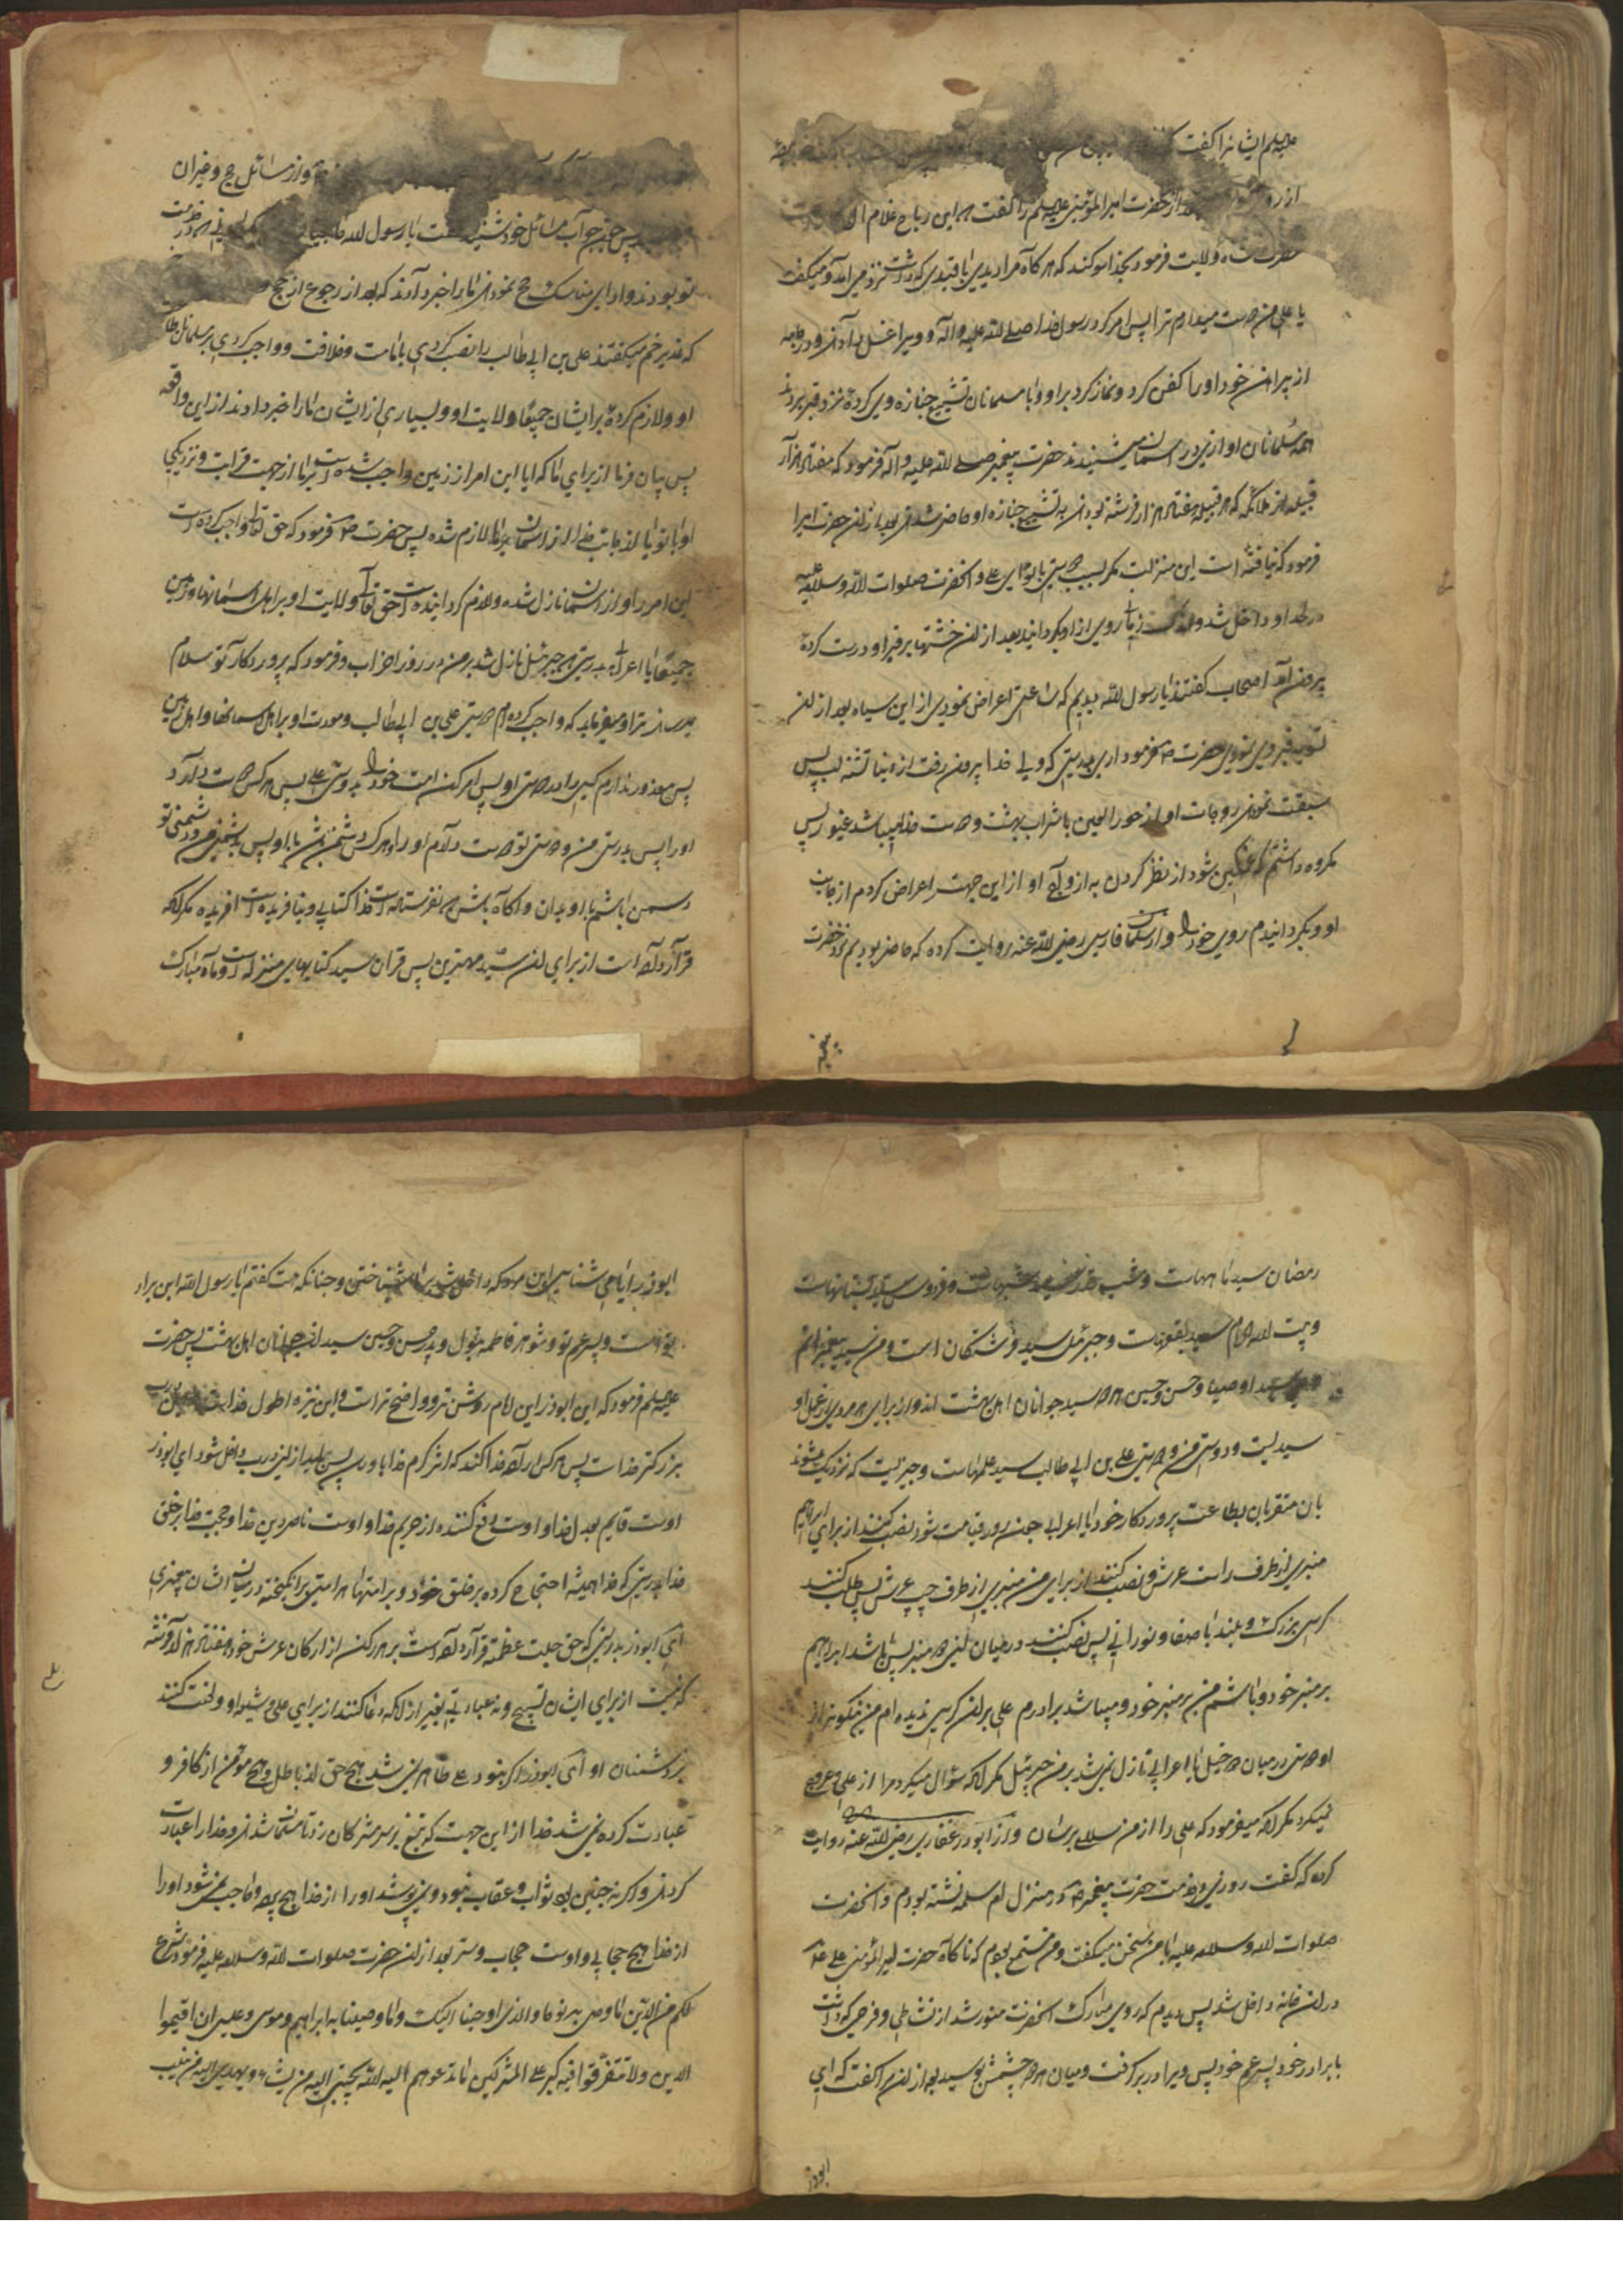 علیه السلام ایشانرا گفت
از حضرت امیرالمؤمنین علیه السلم را گفت که این رباح غلام ال
حضرت شاه ولایت فرمود بخدا سوکند که هرکاه مرا دیدی با قیدی که داشت نزد من آمد و میکفت
یا علی من دوست میدارم ترا پس امر کرد رسول خدا صلی الله علیه واله و ویرا غسل دادند و در جامه
از پیراهن خود اورا کفن کرد و نماز کرد بر او و با مسلمانان تشییع جنازه وی کرده نزد قبر بردند
همه مسلمانان اوازی در اسمان میشنیدند حضرت پیغمبر صلی الله علیه واله فرمود که هفتاد هزار
قبیله از ملائکه که هر قبیله هفتاد هزار فرشته بودند به تشییع جنازه او حاضر شدند بعد از ان حضرت امیر را
فرمود که نیافته است این منزلت مکر بسبب دوستی با تو یا علی و انحضرت صلوات الله وسلامه علیه
در لحد او داخل شد و روی از او بکردانید بعد از ان خشتها بر قبر او درست کرده
بیرون آمد اصحاب کفتند یا رسول الله دیدیم که ساعتی اعراض نمودی از این سیاه بعد از ان
تسویه قبر وی نمودی حضرت فرمود اری بدرستی که ولی خدا بیرون رفت از دنیا تشنه لب پس
سبقت نمودند زوجات او از حور العین با شراب بهشت و دوست خدا میباشد غیور پس
مکروه داشتم که غمکین شود از نظر کردن به ازواج او از این جهت اعراض کردم از جانب
او و بکردانیدم روی خود را و از سلمان فارسی رضی الله عنه روایت کرده که حاضر بودیم نزد حضرت
پیغمبر
و از مسائل حج و غیر ان
پس چون جواب مسائل خود شنید کفت یا رسول الله
تو بودند و ادای مناسک حج نمودند ما را خبر دادند که بعد از رجوع از حج
که غدیر خم میکفتند علی بن ابی طالب را نصب کردی بامامت و خلافت و واجب کردی بر مسلمانان طاعت
او و لازم کرده بر ایشان جمیعا ولایت او و بسیاری از ایشان ما را خبر دادند از این واقعه
پس بیان فرما از برای ما که ایا این امر از زمین واجب شده است بر ما از جهت قرابت و نزدیکی
او با تو یا از جانب خدا از اسمان بر ما لازم شده پس حضرت فرمود که حق تعالی واجب کرده است
این امر را و از اسمان نازل شده و لازم کردانیده است حق تعالی ولایت او بر اهل اسمانها و زمین
جمیعا یا اعرابی بدرستی که جبرئیل نازل شد بر من در روز احزاب و فرمود که پروردکار تو سلام
میرساند ترا و میفرماید که واجب کرده ام دوستی علی بن ابی طالب و مودت او بر اهل اسمانها و اهل زمین
پس معذور ندارم کسی را در دوستی او پس امر کن امت خود را بدوستی علی پس هرکس دوست دارد
او را پس بدرستی من و دوستی تو دوست دارم او را و هرکس دشمن باشد با او پس بدشمنی من و دشمنی تو
دشمن باشم با او بدان و آکاه باش که نفرستاده است خدا کتابی و نیافریده است افریده مکر انکه
قرار داده است از برای ان سید و مهترین پس قران سید کتابهای منزله است و ماه مبارک
رمضان سید ماههاست و شب قدر سید شبهاست و فردوس سید بستانهاست
و بیت الله الحرام سید بقعه هاست و جبرئیل سید فرشتکان است و من سید پیغمبرانم
و علی سید اوصیا و حسن و حسین هر دو سید جوانان اهل بهشت اند و از برای هر مردی از عمل او
سیدیست و دوستی من و دوستی علی بن ابی طالب سید عملهاست و چیزیست که نزدیک میشوند
بان متقربان بطاعت پروردکار خود یا اعرابی چون روز قیامت شود نصب کنند از برای ابراهیم
منبری از طرف راست عرش و نصب کنند از برای من منبری از طرف چپ عرش پس طلب کنند
کرسی بزرک و بلند با صفا و نورانی پس نصب کنند در میان این دو منبر پس باشد ابراهیم
بر منبر خود و باشم من بر منبر خود و میباشد برادرم علی بر ان کرسی ندیده ام من نیکوتر از
او دوستی در میان دو خلیل یا اعرابی نازل نمی شد بر من جبرئیل مکر انکه سؤال میکرد مرا از علی و عروج
نمیکرد مکر انکه میفرمود که علی را از من سلام برسان و از ابوذر غفاری رضی الله عنه روایت
کرده که کفت روزی در خدمت حضرت پیغمبر در منزل ام سلمه نشسته بودم و انحضرت
صلوات الله وسلامه علیه با من سخن میکفت و من مستمع بودم که ناکاه حضرت امیرالمؤمنین علی
در ان خانه داخل شد پس دیدم که روی مبارک انحضرت منور شد از نشاطی و فرحی که داشت
با برادر خود پسر عم خود پس ویرا در بر کرفت و میان هر دو چشمش بوسید بعد از ان مرا کفت که ای
ابوذر
ابوذر ایا می شناسی این مرد که داخل شد بر ما حق شناختن و چنانکه هست کفتم یا رسول الله این برادر
تو است و پسر عم تو و شوهر فاطمه بتول و پدر حسن و حسین سیدان جوانان اهل بهشت پس حضرت
علیه السلم فرمود که ای ابوذر این امام روشن تر و واضح تر است و این نیزه اطول خداست و این باب
بزرکتر خداست پس هرکس اراده خدا کند که اثر کرم خدا باو رسد پس باید از این درب داخل شود ای ابوذر
اوست قایم بعدل خدا و اوست دفع کننده از حریم خدا و اوست ناصر دین خدا و حجت خدا بر خلق
خدا بدرستی که خدا همیشه احتجاج کرده بر خلق خود و بر امتها هر امتی برانکیخته در میان ایشان پیغمبری
ای ابوذر بدرستی که حق جلت عظمته قرار داده است بر هر رکن از ارکان عرش خود هفتاد هزار فرشته
که نیست از برای ایشان تسبیح و نه عبادتی بغیر از انکه دعا کنند از برای علی و شیعه او و لعنت کنند
بر دشمنان او ای ابوذر اکر نبود علی ظاهر نمی شد هیچ حق از باطل و هیچ مؤمن از کافر و
عبادت کرده نمی شد خدا از این جهت که تیغ بر سر مشرکان زد تا مسلمان شدند و خدا را عبادت
کردند و اکر نه چنین بود ثواب و عقاب نبود و نمی پوشد او را از خدا هیچ پرده و حاجب نمی شود او را
از خدا هیچ حجابی و اوست حجاب و ستر بعد از ان حضرت صلوات الله وسلامه علیه فرمود شرع
لکم من الدین ما وصی به نوحا والذی اوحینا الیک وما وصینا به ابراهیم و موسی و عیسی ان اقیموا
الدین ولا تتفرقوا فیه کبر علی المشرکین ما تدعوهم الیه الله یجتبی الیه من یشاء و یهدی الیه من ینیب